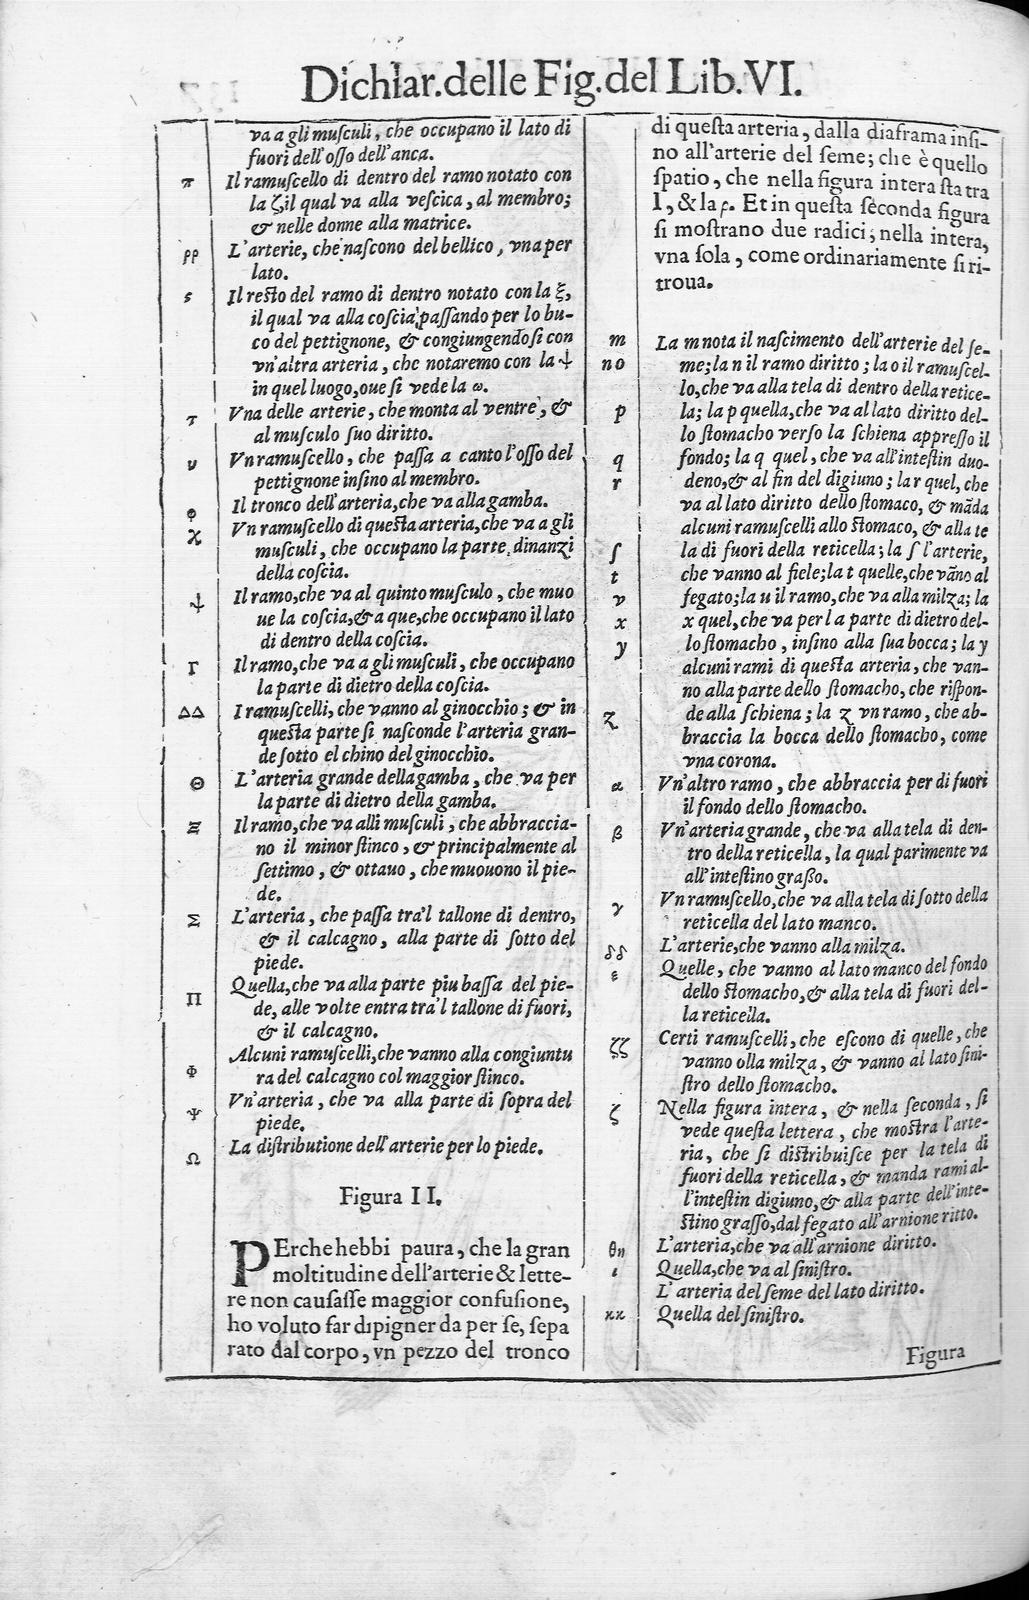 Dichiar.delle Fig.del Lib.VI.
va a gli musculi, che occupano il lato di
fuori dell'osso dell'anca.
π Il ramuscello di dentro del ramo notato con
la ζ, il qual va alla vescica, al membro;
& nelle donne alla matrice.
ρρ L'arterie, che nascono del bellico, vna per
lato.
ς Il resto del ramo di dentro notato con la ξ,
il qual va alla coscia, passando per lo bu-
co del pettignone, & congiungendosi con
vn'altra arteria, che notaremo con la ψ
in quel luogo, oue si vede la ω.
τ Vna delle arterie, che monta al ventre, &
al musculo suo diritto.
υ Vn ramuscello, che passa a canto l'osso del
pettignone insino al membro.
φ Il tronco dell'arteria, che va alla gamba.
χ Vn ramuscello di questa arteria, che va a gli
musculi, che occupano la parte dinanzi
della coscia.
ψ Il ramo, che va al quinto musculo, che muo
ue la coscia, & a que, che occupano il lato
di dentro della coscia.
Γ Il ramo, che va a gli musculi, che occupano
la parte di dietro della coscia.
ΔΔ I ramuscelli, che vanno al ginocchio; & in
questa parte si nasconde l'arteria gran-
de sotto el chino del ginocchio.
Θ L'arteria grande della gamba, che va per
la parte di dietro della gamba.
Ξ Il ramo, che va alli musculi, che abbraccia-
no il minor stinco, & principalmente al
settimo, & ottauo, che muouono il pie-
de.
Σ L'arteria, che passa tra'l tallone di dentro,
& il calcagno, alla parte di sotto del
piede.
Π Quella, che va alla parte piu bassa del pie-
de, alle volte entra tra'l tallone di fuori,
& il calcagno.
Φ Alcuni ramuscelli, che vanno alla congiuntu
ra del calcagno col maggior stinco.
Ψ Vn'arteria, che va alla parte di sopra del
piede.
Ω La distributione dell'arterie per lo piede.
Figura II.
PErche hebbi paura, che la gran
moltitudine dell'arterie & lette-
re non causasse maggior confusione,
ho voluto far dipigner da per se, sepa
rato dal corpo, vn pezzo del tronco
di questa arteria, dalla diaframa insi-
no all'arterie del seme; che è quello
spatio, che nella figura intera sta tra
l, & la ρ. Et in questa seconda figura
si mostrano due radici; nella intera,
vna sola, come ordinariamente si ri-
troua.
m La m nota il nascimento dell'arterie del se-
no me; la n il ramo diritto; la o il ramuscel-
lo, che va alla tela di dentro della retice-
p la; la p quella, che va al lato diritto del-
lo stomacho verso la schiena appresso il
q fondo; la q quel, che va all'intestin duo-
r deno, & al fin del digiuno; la r quel, che
va al lato diritto dello stomaco, & mãda
alcuni ramuscelli allo stomaco, & alla te
ſ la di fuori della reticella; la ſ l'arterie,
t che vanno al fiele; la t quelle, che vãno al
v fegato; la u il ramo, che va alla milza; la
x x quel, che va per la parte di dietro del-
y lo stomacho, insino alla sua bocca; la y
alcuni rami di questa arteria, che van-
no alla parte dello stomacho, che rispon-
z de alla schiena; la z vn ramo, che ab-
braccia la bocca dello stomacho, come
vna corona.
α Vn'altro ramo, che abbraccia per di fuori
il fondo dello stomacho.
β Vn'arteria grande, che va alla tela di den-
tro della reticella, la qual parimente va
all'intestino graßo.
γ Vn ramuscello, che va alla tela di sotto della
reticella del lato manco.
δδ L'arterie, che vanno alla milza.
ε Quelle, che vanno al lato manco del fondo
dello stomacho, & alla tela di fuori del-
la reticella.
ζζ Certi ramuscelli, che escono di quelle, che
vanno olla milza, & vanno al lato sini-
stro dello stomacho.
ζ Nella figura intera, & nella seconda, si
vede questa lettera, che mostra l'arte-
ria, che si distribuisce per la tela di
fuori della reticella, & manda rami al-
l'intestin digiuno, & alla parte dell'inte-
stino grasso, dal fegato all'arnione ritto.
θη L'arteria, che va all'arnione diritto.
ι Quella, che va al sinistro.
L'arteria del seme del lato diritto.
κκ Quella del sinistro.
Figura